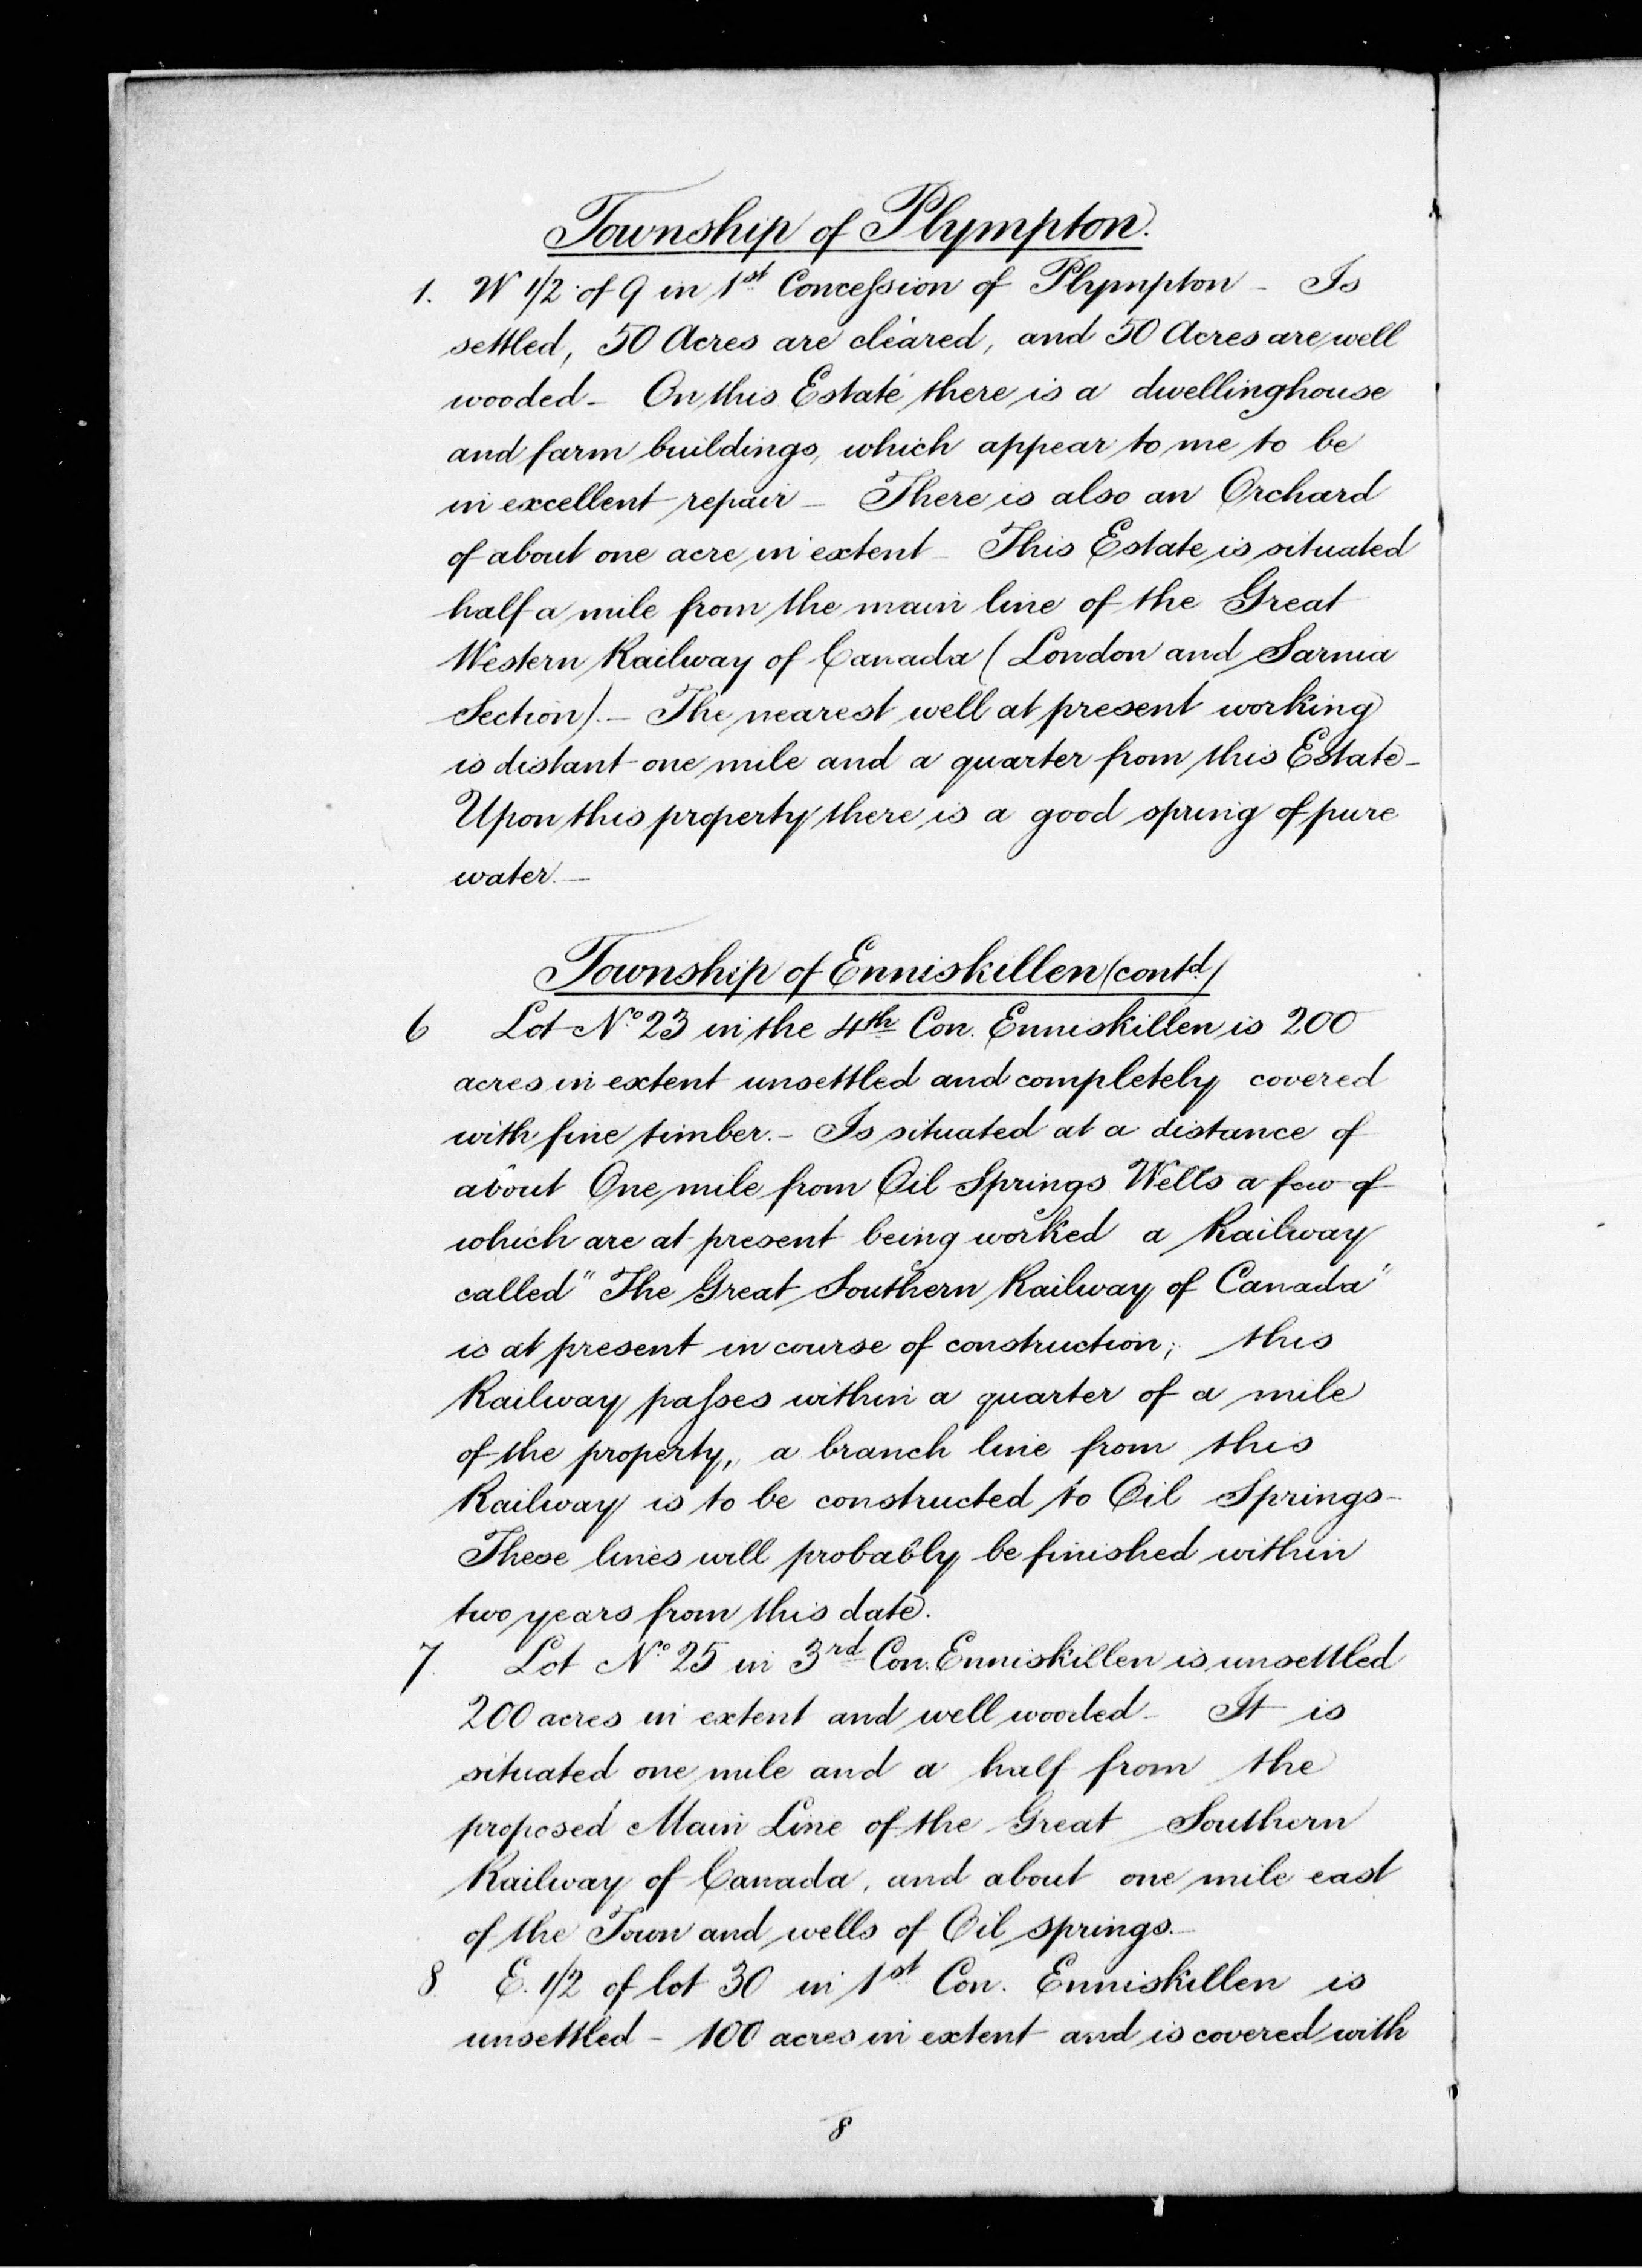 Township of Plympton.
1. W 1/2 of 9 in 1st Concession of Plympton - Is
settled, 50 Acres are cleared, and 50 Acres are well
wooded - On this Estate there is a dwellinghouse
and farm buildings, which appear to me to be
in excellent repair - There is also an Orchard
of about one acre in extent - This Estate is situated
half a mile from the main line of the Great
Western Railway of Canada (London and Sarnia
Section). - The nearest well at present working
is distant one mile and a quarter from this Estate -
Upon this property there is a good spring of pure
water. -
Township of Enniskillen (contd)
6 Lot No. 23 in the 4th Con. Enniskillen is 200
acres in extent unsettled and completely covered
with fine timber. - Is situated at a distance of
about One mile from Oil Springs Wells a few of
which are at present being worked a Railway
called "The Great Southern Railway of Canada"
is at present in course of construction; this
Railway passes within a quarter of a mile
of the property, a branch line from this
Railway is to be constructed to Oil Springs -
These lines will probably be finished within
two years from this date.
7. Lot No. 25 in 3rd Con. Enniskillen is unsettled
200 acres in extent and well wooded - It is
situated one mile and a half from the
proposed Main Line of the Great Southern
Railway of Canada, and about one mile east
of the Town and wells of Oil springs. -
8. E. 1/2 of lot 30 in 1st Con. Enniskillen is
unsettled - 100 acres in extent and is covered with
8